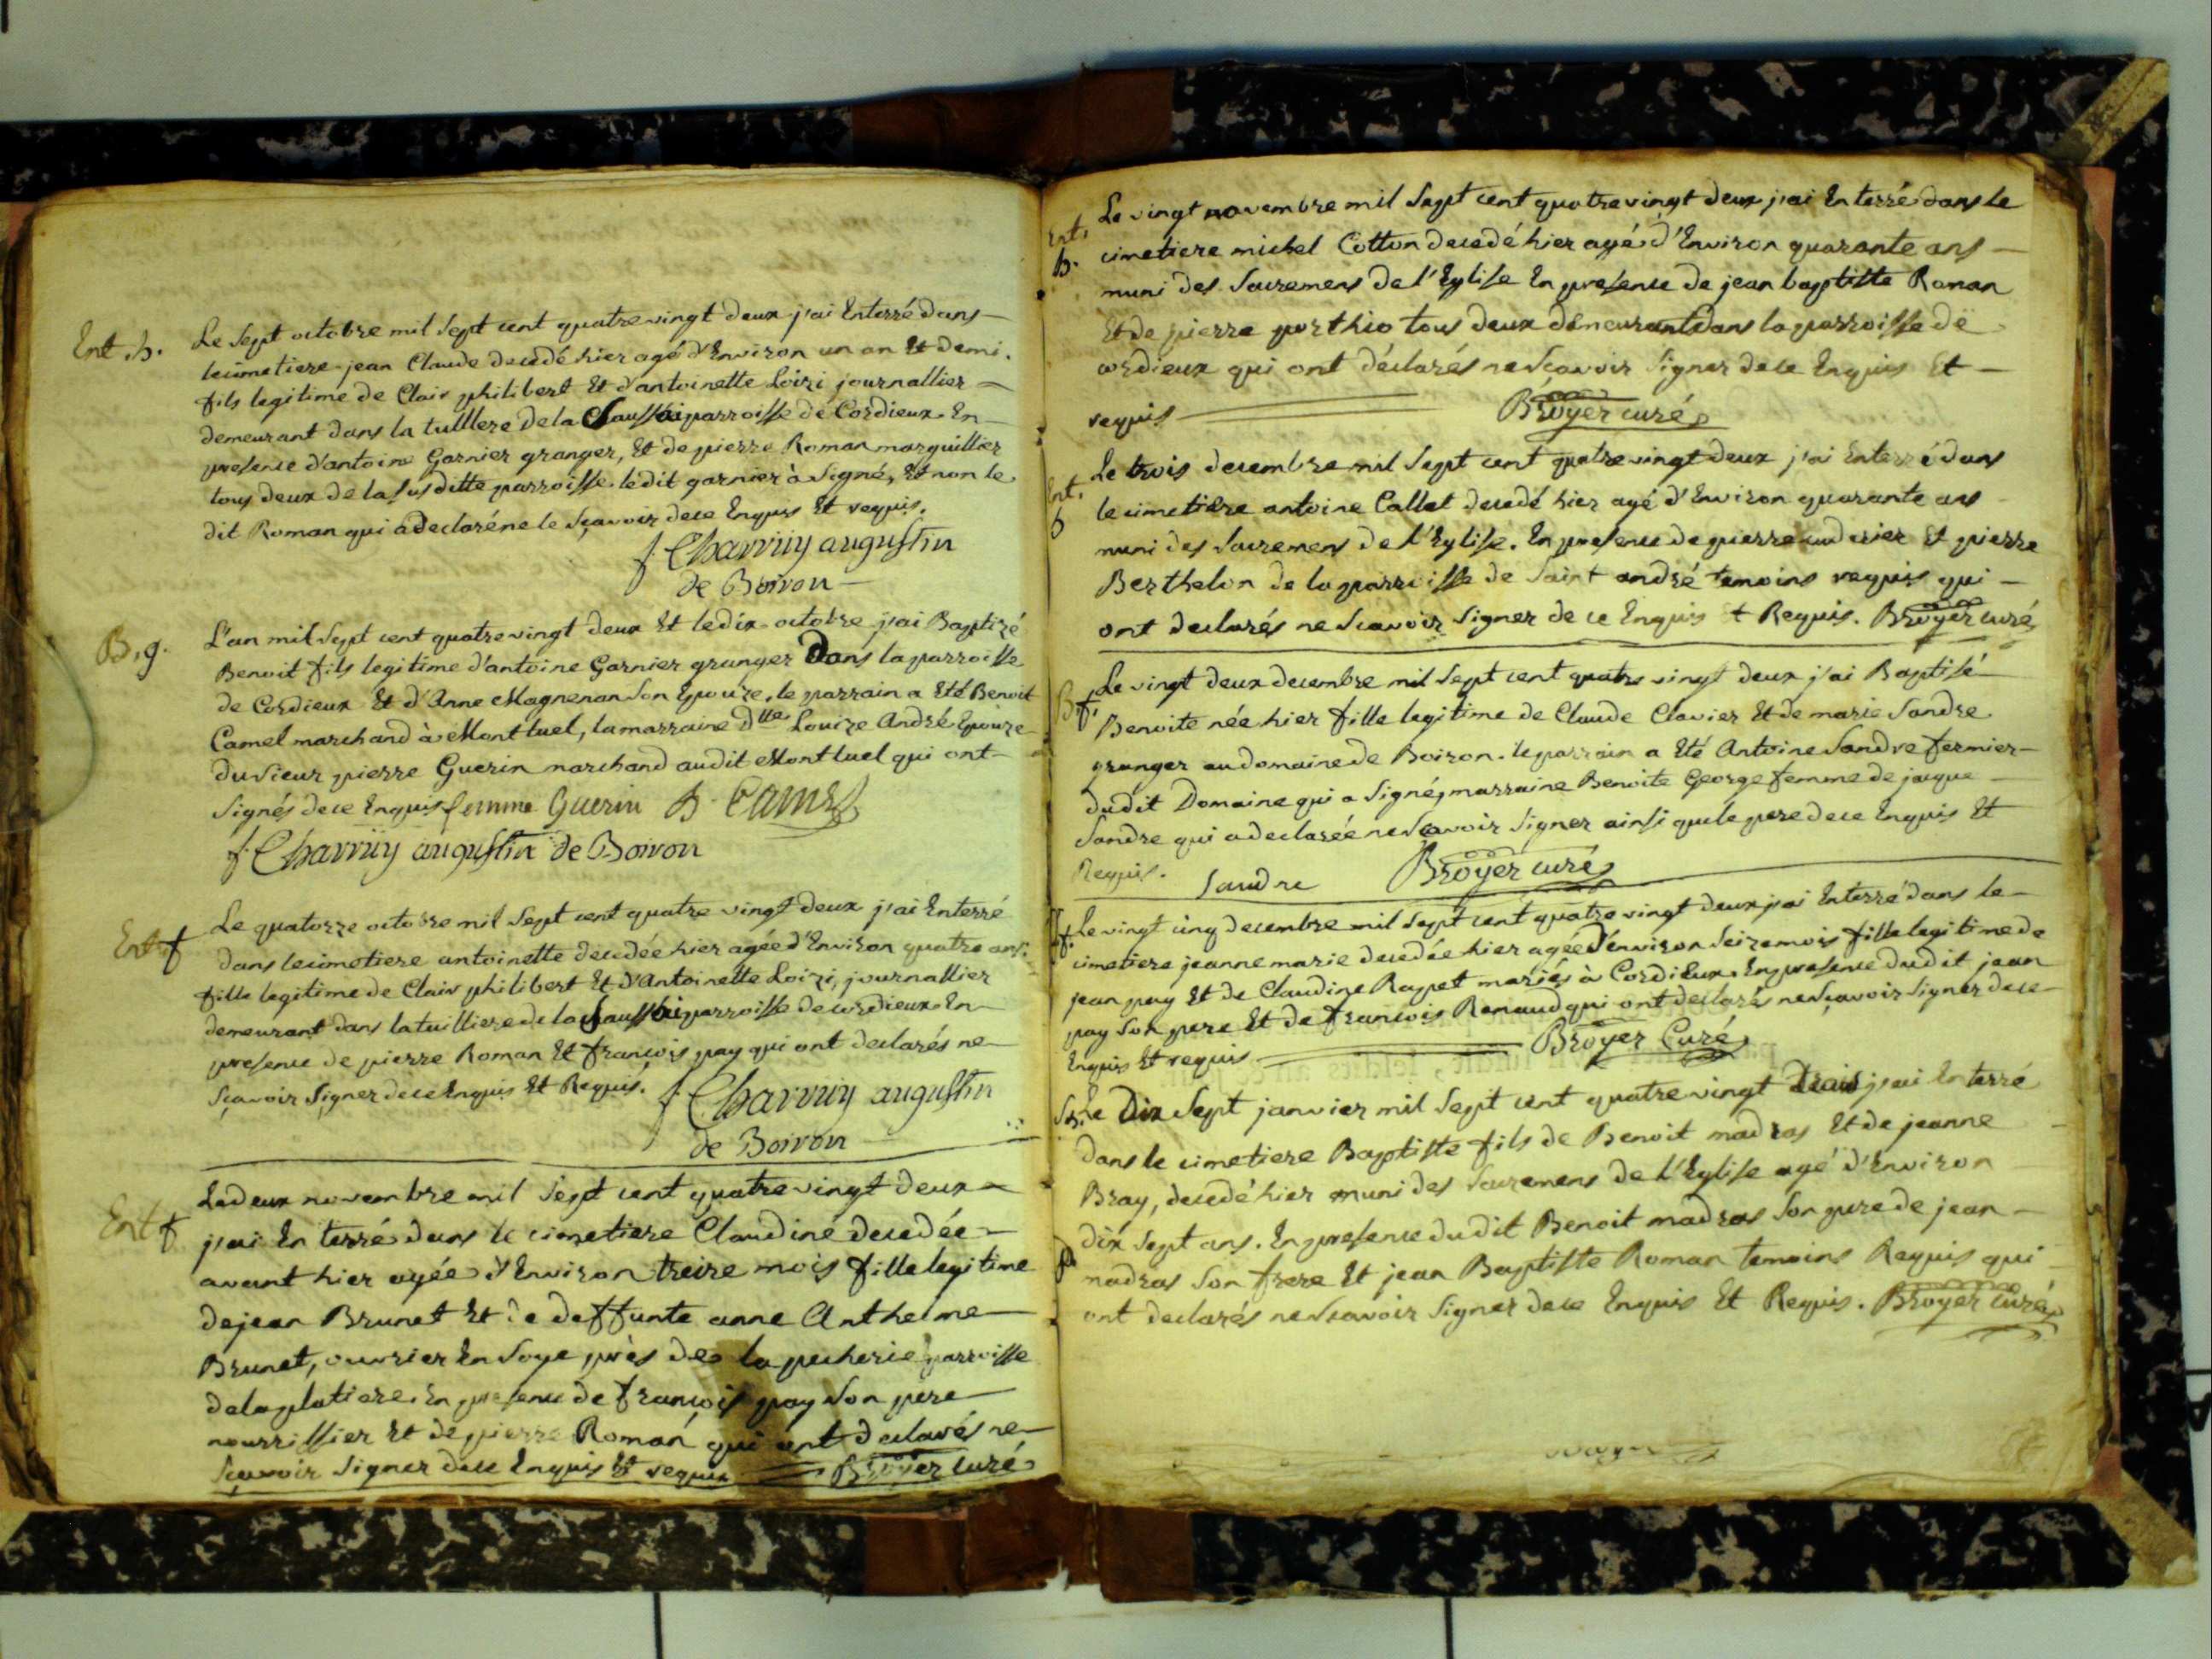 Ent. h. Le Sept octobre mil Sept cent quatre vingt deux j'ai Enterré dans
le cimetiere jean Claude decedé hier agé d'Environ un an Et demi.
fils legitime de Clair philibert Et d'antoinette Loizi journallier
demeurant dans la tuillere de la Chaussée parroisse de Cordieux. En
presence d'antoine Garnier granger, Et de pierre Roman marguillier
tous deux de la susditte parroisse. ledit garnier à Signé, Et non le
dit Roman qui a declaré ne le Sçavoir de ce Enquis Et requis.
f. Charvuÿ augustin
de Boiron
B. g. L'an mil Sept cent quatre vingt deux Et le dix octobre j'ai Baptizé
Benoit fils legitime d'antoine Garnier granger Dans la parroisse
de Cordieux Et d'Anne Magnenan Son Epouze, le parrain a Eté Benoit
Camel marchand à Montluel, la marraine dlle Louize André Epouze
du Sieur pierre Guerin marchand audit Montluel qui ont
Signés de ce Enquis femme Guerin B. Camel
f. Charvuÿ augustin de Boiron
Ent f Le quatorze octobre mil Sept cent quatre vingt deux j'ai Enterré
dans le cimetiere antoinette decedée hier agée d'Environ quatre ans.
fille legitime de Clair philibert Et d'Antoinette Loizi, journallier
demeurant dans la tuilliere de la Chaussée parroisse de cordieux. En
presence de pierre Roman Et francois pay qui ont declarés ne
Sçavoir Signer de ce Enquis Et Requis. f. Charvuÿ augustin
de Boiron
Ent f Le deux novembre mil Sept cent quatre vingt deux
j'ai Enterré dans le cimetiere Claudine decedée
avant hier agée d'Environ treize mois fille legitime
de jean Brunet Et de deffunte anne Anthelme
Brunet, ouvrier En Soye près de la pecherie parroisse
de la platiere. En presence de francois pay Son pere
nourrissier Et de pierre Roman qui ont declarés ne
Sçavoir Signer de ce Enquis Et requis Broyer curé
Ent. Le vingt novembre mil Sept cent quatre vingt deux j'ai Enterré dans le
h. cimetiere michel Cotton decedé hier agé d'Environ quarante ans
muni des Sacremens de l'Eglise En presence de jean baptiste Roman
Et de pierre porthio tous deux demeurant dans la parroisse de
cordieux qui ont déclarés ne Sçavoir Signer de ce Enquis Et
requis Broyer curé
Ent. Le trois decembre mil Sept cent quatre vingt deux j'ai Enterré dans
h le cimetière antoine Callet decedé hier agé d'Environ quarante ans
muni des Sacremens de l'Eglise. En presence de pierre Et pierre
Berthelon de la parroisse de Saint andré temoins requis qui
ont declarés ne Scavoir Signer de ce Enquis Et Requis. Broyer curé
B f. Le vingt deux decembre mil Sept cent quatre vingt deux j'ai Baptisé
Benoite née hier fille legitime de Claude Clavier Et de marie Sandre
granger au domaine de Boiron. le parrain a Eté Antoine Sandre fermier
dudit Domaine qui a Signé, marraine Benoite George femme de jacque
Sandre qui a declarée ne Sçavoir Signer ainsi que le pere de ce Enquis Et
Requis. Sandre Broyer curé
f. Le vingt cinq decembre mil Sept cent quatre vingt deux j'ai Enterré dans le
cimetiere jeanne marie decedée hier agée d'environ Seize mois fille legitime de
jean pay Et de Claudine Rapet mariés à Cordieux. En presence dudit jean
pay Son pere Et de francois Renaud qui ont declarés ne Sçavoir Signer de ce
Enquis Et requis Broyer Curé
Le Dix Sept janvier mil Sept cent quatre vingt trois j'ai Enterré
dans le cimetiere Baptiste fils de Benoit madras Et de jeanne
Bray, decedé hier muni des Sacremens de l'Eglise agé d'Environ
dix Sept ans. En presence dudit Benoit madras Son pere de jean
madras Son frere Et jean Baptiste Roman temoins Requis qui
ont declarés ne Scavoir Signer de ce Enquis Et Requis. Broyer curé